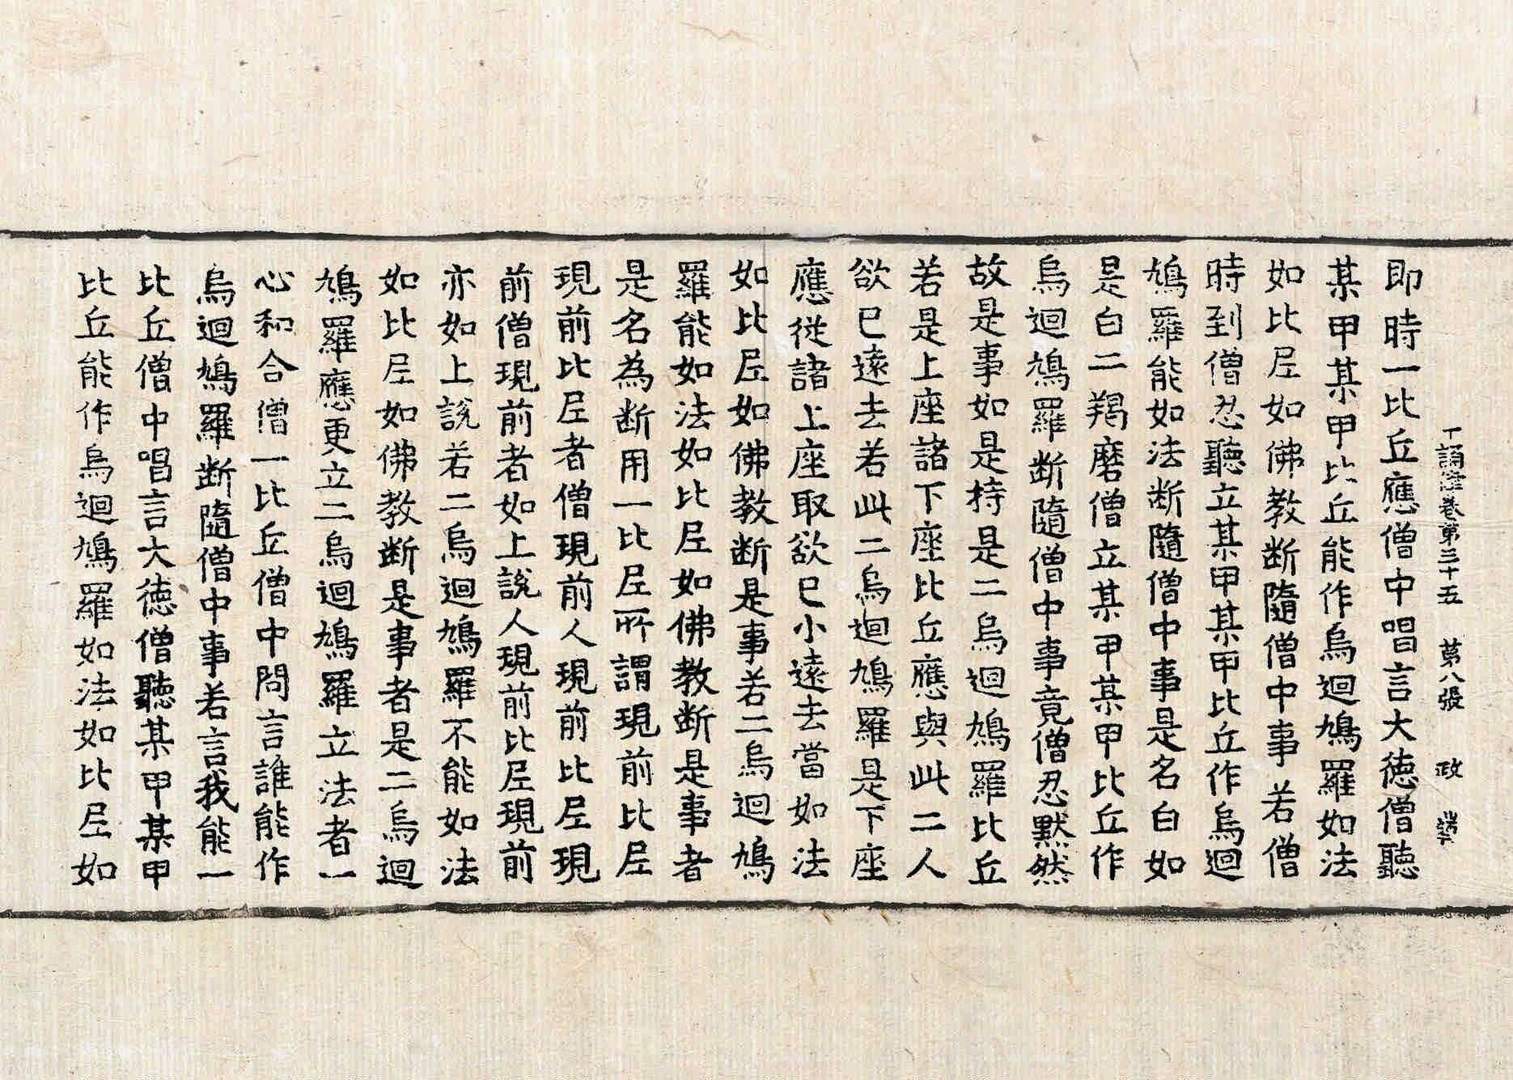 十誦律卷第三十五 第八張 政
即時一比丘應僧中唱言大德僧聽
某甲某甲比丘能作烏迴鳩羅如法
如比尼如佛教断隨僧中事若僧
時到僧忍聽立某甲某甲比丘作烏迴
鳩羅能如法断隨僧中事是名白如
是白二羯磨僧立某甲某甲比丘作
烏迴鳩羅断隨僧中事竟僧忍默然
故是事如是持是二烏迴鳩羅比丘
若是上座諸下座比丘應與此二人
欲已遠去若此二烏迴鳩羅是下座
應從諸上座取欲已小遠去當如法
如比尼如佛教断是事若二烏迴鳩
羅能如法如比尼如佛教断是事者
是名為断用一比尼所謂現前比尼
現前比尼者僧現前人現前比尼現
前僧現前者如上說人現前比尼現前
亦如上說若二烏迴鳩羅不能如法
如比尼如佛教断是事者是二烏迴
鳩羅應更立二烏迴鳩羅立法者一
心和合僧一比丘僧中問言誰能作
烏迴鳩羅断隨僧中事若言我能一
比丘僧中唱言大德僧聽某甲某甲
比丘能作烏迴鳩羅如法如比尼如